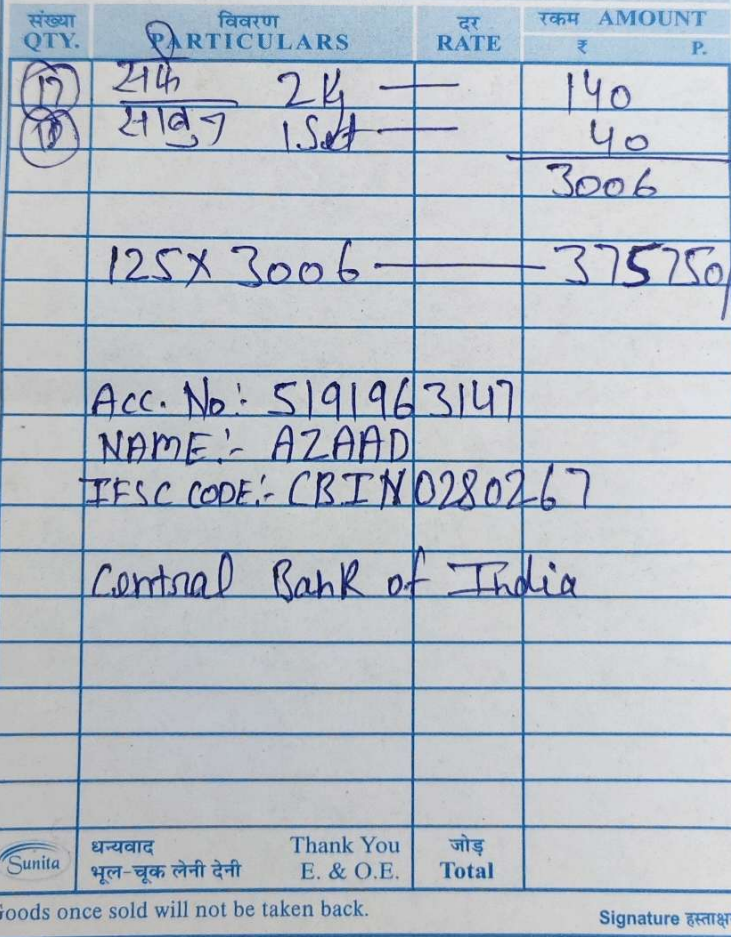 संख्या विवरण दर रकम AMOUNT
QTY. PARTICULARS RATE ₹ P.
17 सर्फ 2 Kg — 140
18 साबुन 1 Set — 40
3006
125 X 3006 — 375750/
Acc. No:- 5191963147
NAME:- AZAAD
IFSC CODE:- CBIN0280267
Central Bank of India
Sunita धन्यवाद Thank You जोड़
भूल-चूक लेनी देनी E. & O.E. Total
Goods once sold will not be taken back. Signature हस्ताक्षर